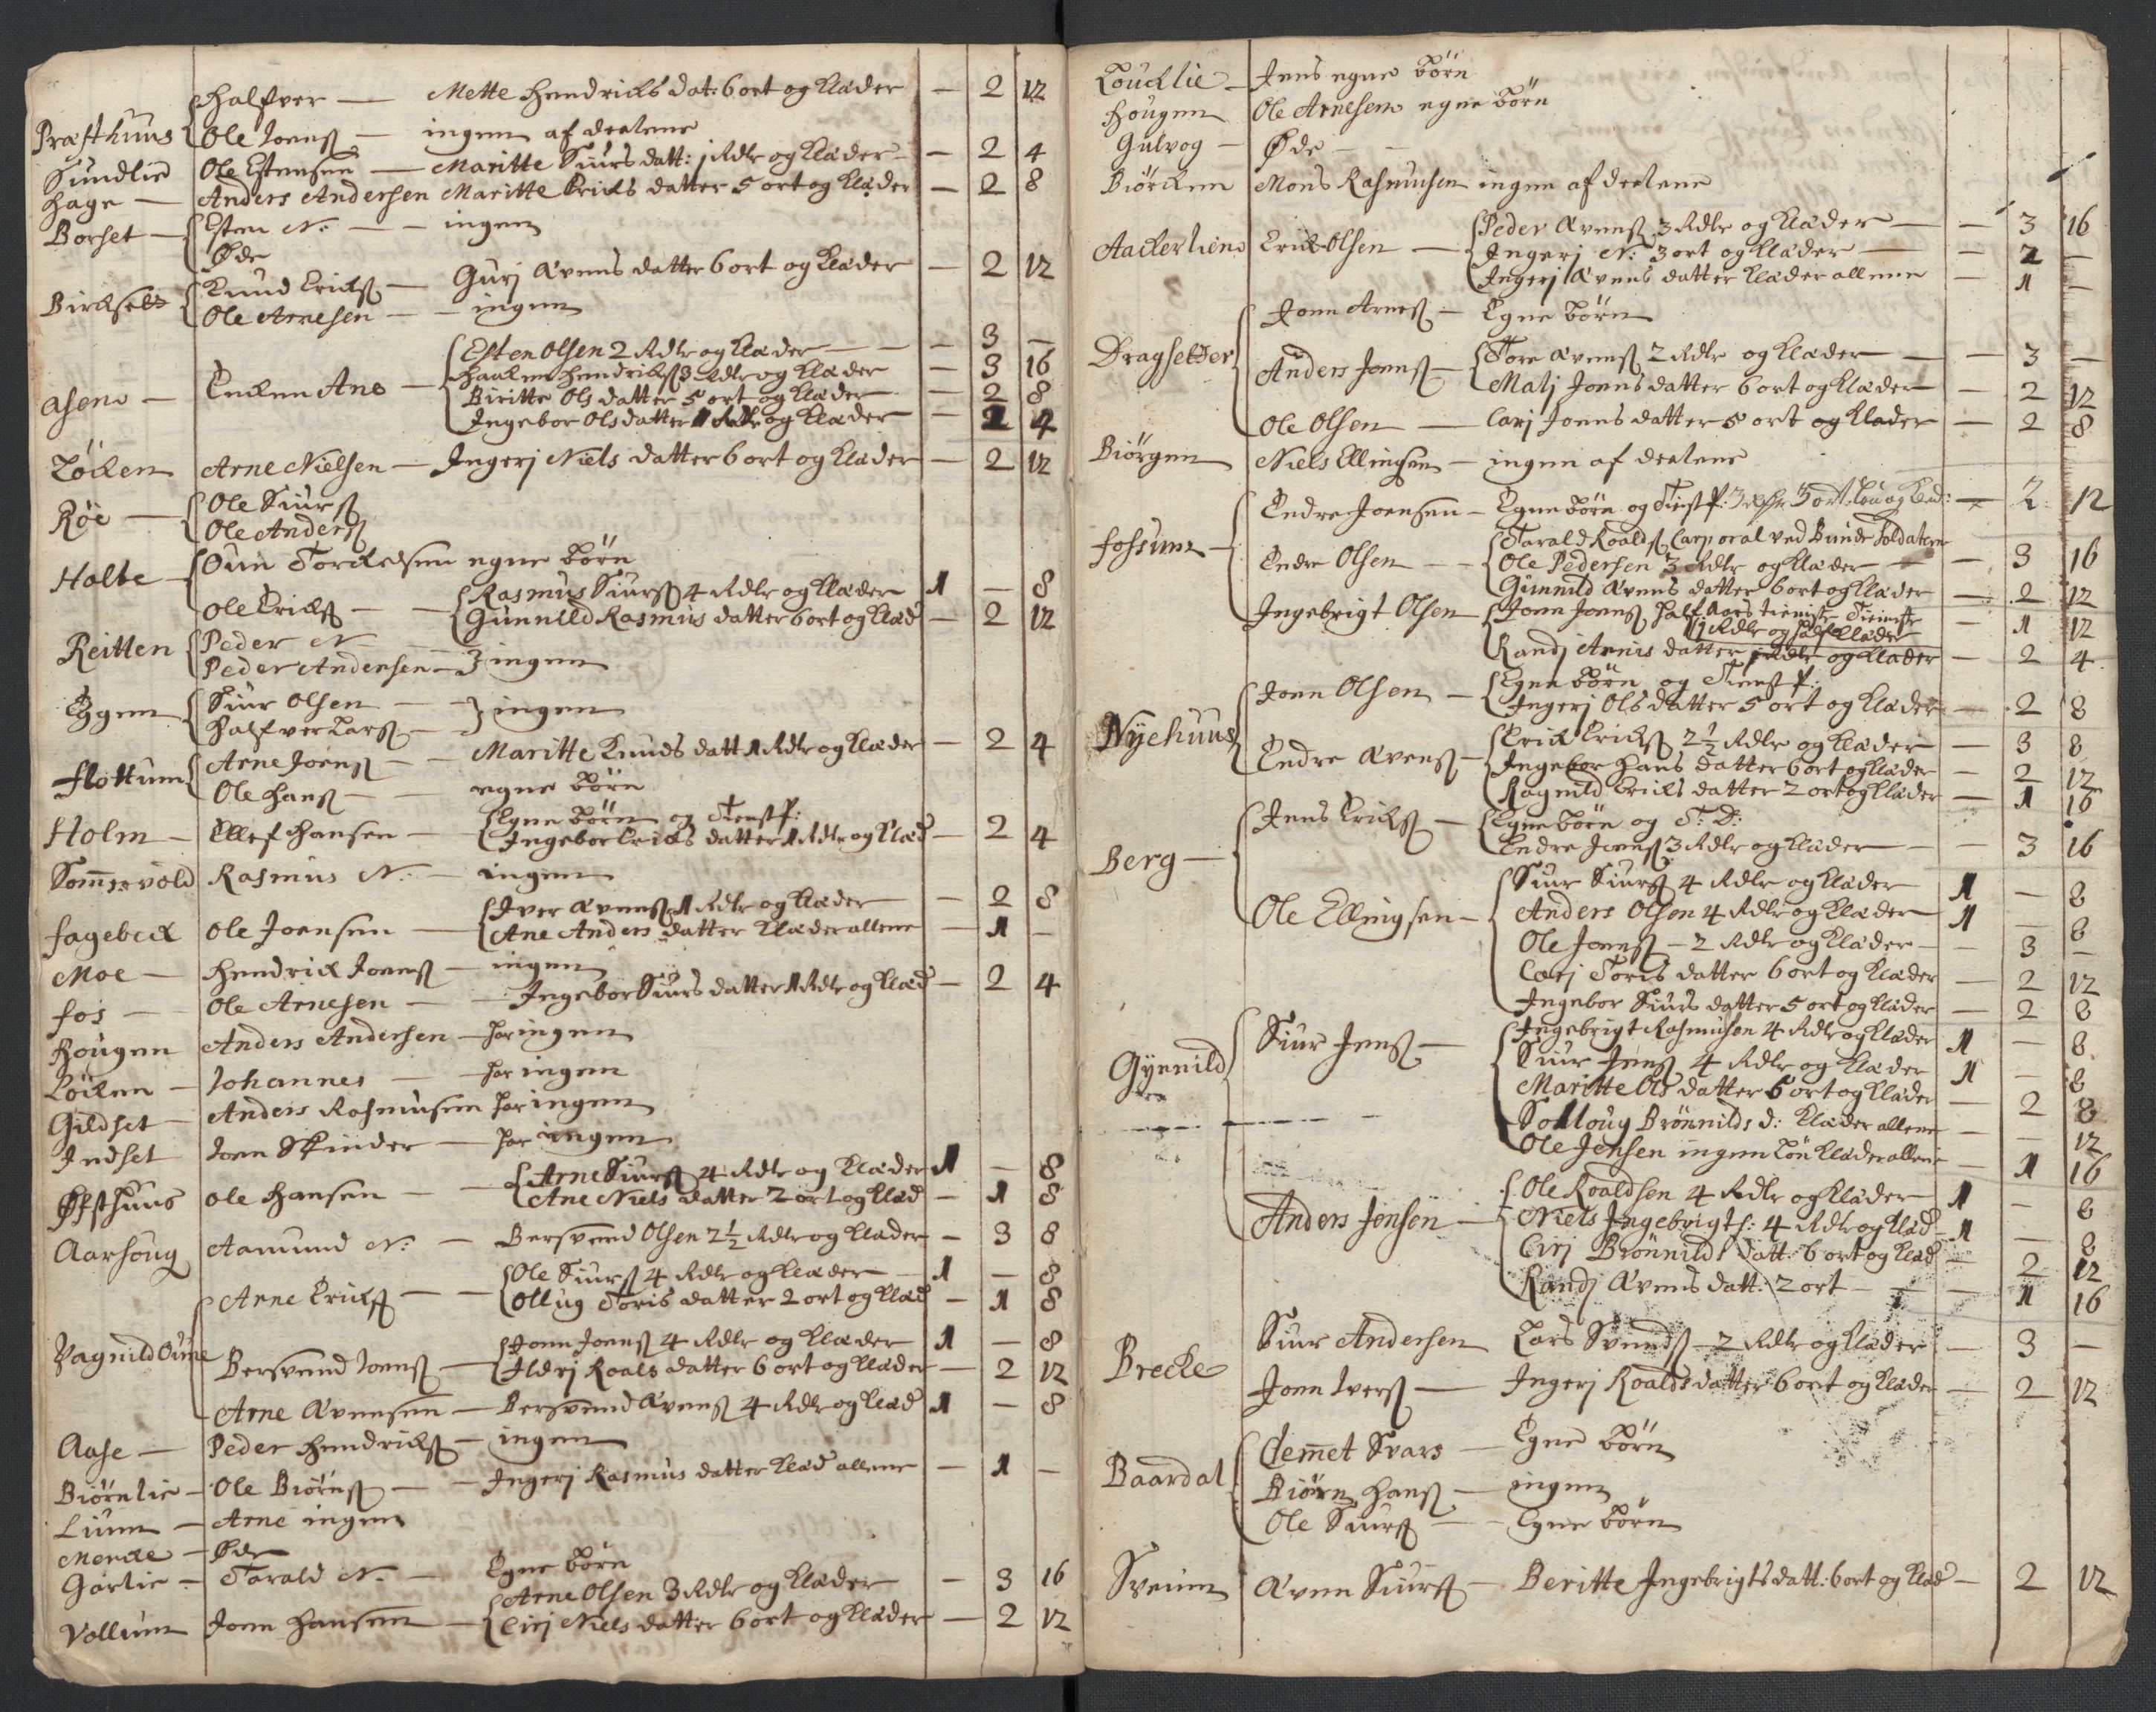 Præsthuus Halfver — Mette Hendricks dat: 6 ort og Klæder — 2 12
Ole Joenß — ingen af deelene
Sundlie Ole Estensen — Maritte Siurs datt: 1 Rdlr og Klæder — 2 4
Hage — Anders Andersen Maritte Ericks datter 5 ort og Klæder — 2 8
Borset — Esten N: — ingen
Øde
Birckset Knud Ericksß — Gurj Ævens datter 6 ort og Klæder — 2 12
Ole Arnesen — ingen
Aasen — Encken Ane — Esten Olsen 2 Rdlr og Klæder — 3 —
Haaken Hendricksß 3 Rdlr og Klæder — 3 16
Biritte Ols datter 5 ort og Klæder — 2 8
Ingebor Olsdatter 1 Rdlr og Klæder — 2 4
Löcken Arne Nielsen — Ingerj Niels datter 6 ort og Klæder — 2 12
Röe — Ole Siursß
Ole Andersß
Halte — Oun Torckelsen egne Börn
Ole Ericksß — Rasmus Siursß 4 Rdlr og Klæder 1 — 8
Gunnild Rasmus datter 6 ort og Klæd — 2 12
Reitten Peder N
Peder Andersen — ingen
Eggen Siur Olsen — ingen
Halfver Larsß
Flottum Arne Joenß — Maritte Knuds datt 1 Rdlr og Klæder — 2 4
Ole Hansß — egne Börn
Holm — Ellef Hansen — Egne Börn og Tienst f:
Ingebor Ericks datter 1 Rdlr og Klæd — 2 4
Som̄ervold Rasmus N: — ingen
Fagebeck Ole Joensen — Iver Ævensß 1 Rdlr og Klæder — 2 8
Ane Anders datter Klæder allene — 1 —
Moe — Hendrick Joenß — ingen
Fos — Ole Arnesen — Ingebor Siurs datter 1 Rdlr og Klæd — 2 4
Hougen Anders Andersen — har ingen
Löcken — Johannes — har ingen
Gildset — Anders Rasmusen har ingen
Indset Joen Skinder — har ingen
Østhuus Ole Hansen — Arne Siursß 4 Rdlr og Klæder 1 — 8
Ane Niels datter 2 ort og Klæd — 1 8
Aarhoug Aamund N: — Bersvend Olsen 2½ Rdlr og Klæder — 3 8
Vagnild Oune Arne Ericksß — Ole Siursß 4 Rdlr og Klæder 1 — 8
Ollug Toris datter 2 ort og Klæd — 1 8
Bersvend Joenß — Joen Joenß 4 Rdlr og Klæder 1 — 8
Ildrj Roals datter 6 ort og Klæder — 2 12
Arne Ævensen — Bersvend Ævensß 4 Rdlr og Klæd 1 — 8
Aase — Peder Hendricksß — ingen
Biörnlie — Ole Biörnsß — Ingerj Rasmus datter Klæd allene — 1 —
Lium — Arne ingen
Mercke — Øde
Garlie — Tarald N. — Egne Börn
Vollum Joen Hansen — Arne Olsen 3 Rdlr og Klæder — 3 16
Cirj Niels datter 6 ort og Klæder — 2 12
Loucklie — Jens egne Börn
Hougen Ole Arnesens egne Börn
Gulvog — Øde —
Biörcken Mons Rasmusen ingen af deelene
Aackerliens Erick Olsen — Peder Ævensß 3 Rdlr og Klæder — 3 16
Ingerj N: 3 ort og Klæder — 2 —
Ingerj Ævens datter Klæder allene — 1 —
Dragsetter Joen Arneß — Egne Börn
Anders Joenß — Tore Ævensß 2 Rdlr og Klæder — 3 —
Malj Joens datter 6 ort og Klæder — 2 12
Ole Olsen — Carj Joens datter 5 ort og Klæder — 2 8
Biörgen Niels Ellingsen — ingen af deelene
Fossum — Endre Joensen — Egne Börn og Tienst f: — 2 12
Endre Olsen — Tarald Roaldsß Carporal ved Bunde Soldaterne
Ole Pedersen 3 Rdlr og Klæder — 3 16
Gunnild Ævens datter 6 ort og Klæder — 2 12
Ingebrigt Olsen — Joen Joenß half Aars tieniste
1 Rdlr og half Klæder — 1 12
Randj Arnis datter 1 Rdlr og Klæder — 2 4
Nÿehuus Joen Olsen — Egne Börn og Tienst f:
Ingerj Ols datter 5 ort og Klæder — 2 8
Endre Ævensß — Erick Ericksß 2½ Rdlr og Klæder — 3 8
Ingebor Hans datter 6 ort og Klæder — 2 12
Ragnild Ericks datter 2 ort og Klæder — 1 16
Berg — Jens Ericksß — Egne Börn og T: D:
Endre Joenß 3 Rdlr og Klæder — 3 16
Ole Ellingsen — Siur Siursß 4 Rdlr og Klæder 1 — 8
Anders Olsen 4 Rdlr og Klæder 1 — 8
Ole Joenß — 2 Rdlr og Klæder — 3 —
Carj Toris datter 6 ort og Klæder — 2 12
Ingebor Siurs datter 5 ort og Klæder — 2 8
Gÿnnild Siur Jensß — Ingebrigt Rasmusen 4 Rdlr og Klæder 1 — 8
Siur Jensß 4 Rdlr og Klæder 1 — 8
Maritte Ols datter 5 ort og Klæder — 2 8
Solloug Brönnilds d: Klæder allene — — 12
Ole Jensen ingen Lön Klæder allene — 1 16
Anders Jensen — Ole Roaldsen 4 Rdlr og Klæder 1 — 8
Niels Ingebrigts: 4 Rdlr og Klæd 1 — 8
Cirj Brönnilds datt: 6 ort og Klæd — 2 12
Randj Ævens datt: 2 ort — 1 16
Brecke Siur Andersen Lars Svendsß — 2 Rdlr og Klæder — 3 —
Joen Iversß — Ingerj Roalds datter 6 ort og Klæder — 2 12
Baardal Clem̄et Svars — Egne Börn
Biörn Hansß — ingen
Ole Siursß — Egne Börn
Sveum Æven Siursß — Beritte Ingebrigts datt: 6 ort og Klæd — 2 12